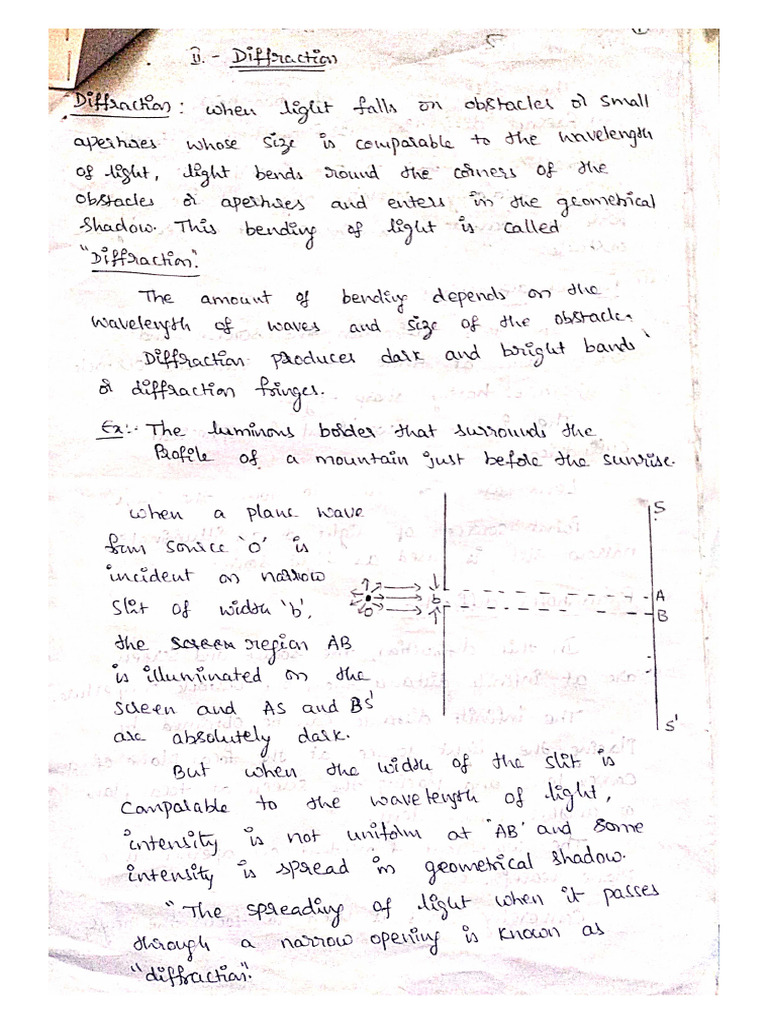 II. - Diffraction
Diffraction : when light falls on obstacles or small
apertures whose size is comparable to the wavelength
of light, light bends round the corners of the
obstacles or apertures and enters in the geometrical
shadow. This bending of light is called
"Diffraction".
The amount of bending depends on the
wavelength of waves and size of the obstacle.
Diffraction produces dark and bright bands
or diffraction fringes.
Ex:- The luminous border that surrounds the
Profile of a mountain just before the sunrise.
when a plane wave
from source 'O' is
incident on narrow
slit of width 'b',
the screen region AB
is illuminated on the
screen and AS and BS'
are absolutely dark.
O
b
S
A
B
S'
But when the width of the slit is
comparable to the wavelength of light,
intensity is not uniform at 'AB' and some
intensity is spread in geometrical shadow.
"The spreading of light when it passes
through a narrow opening is known as
"diffraction".